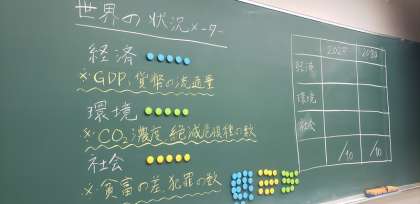 世界の状況メーター
経済
※GDP、貨幣の流通量
環境
※CO₂濃度、絶滅危惧種の数
社会
※貧富の差、犯罪の数
経済
環境
社会
/10
/10